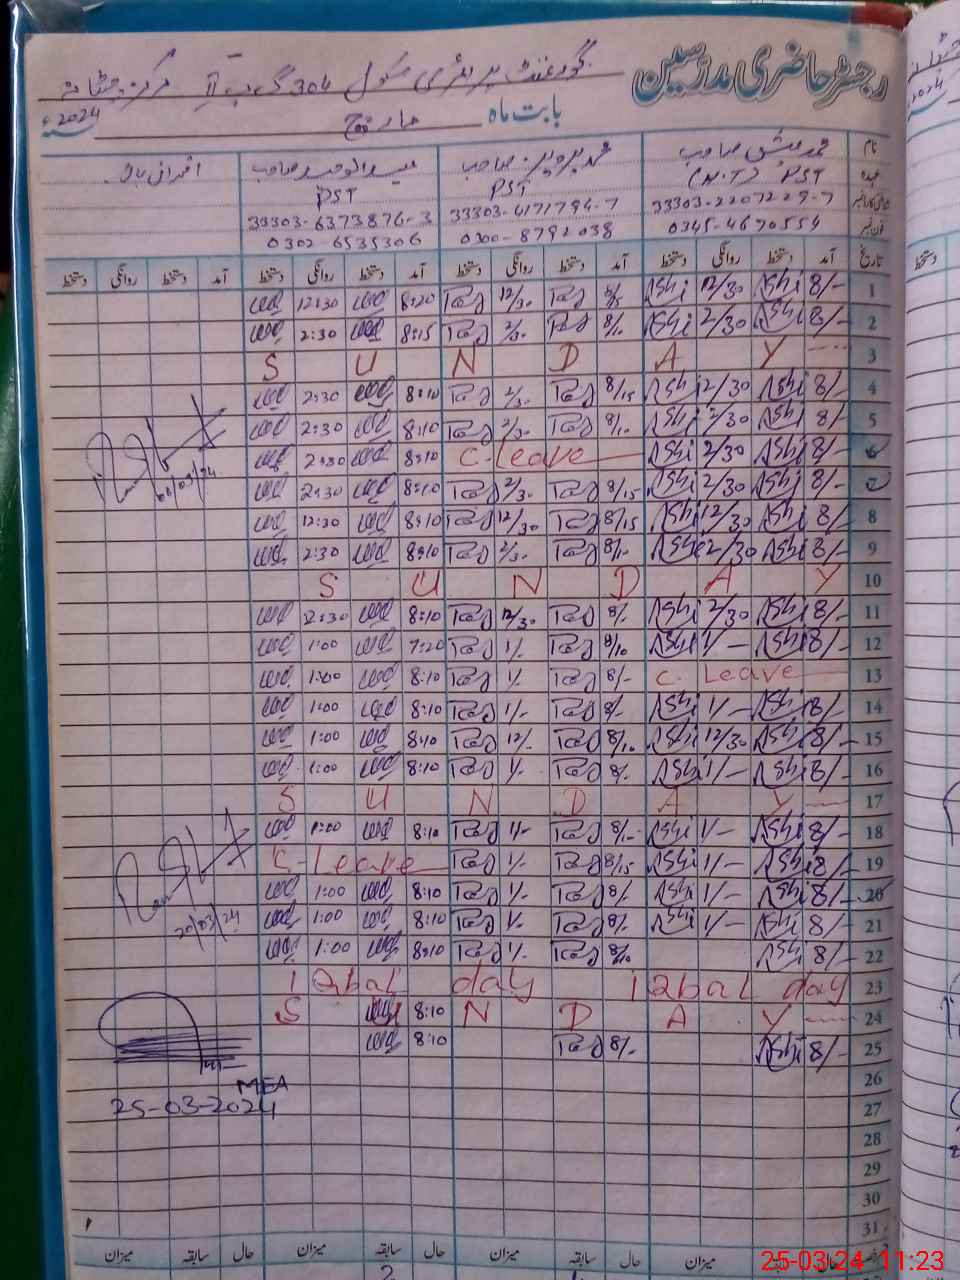 رجسٹر حاضری مدرسین
گورنمنٹ پرائمری سکول 304 گ ب II مرکز
بابت ماہ مارچ 2024ء
نام محمد صاحب محمد پرویز صاحب عبدالوحید صاحب
عہدہ PST (H.T) PST PST
33303-2207229-7 33303-4171794-7 33303-6373876-3
فون نمبر 0345-4670554 0300-8792038 0302-6535306
تاریخ آمد دستخط روانگی دستخط آمد دستخط روانگی دستخط آمد دستخط روانگی دستخط آمد دستخط روانگی دستخط
1 8/- 12/30 12/30 8:20 12:30
2 8/- 2/30 2/30 8:15 2:30
3 S U N D A Y
4 8/- 2/30 8/15 2/30 8:10 2:30
5 8/- 2/30 8/10 2/30 8:10 2:30
6 8/- 2/30 C.Leave 8:10 2:30
7 8/- 2/30 8/15 2/30 8:10 2:30
8 8/- 12/30 8/15 12/30 8:10 12:30
9 8/- 2/30 8/10 2/30 8:10 2:30
10 S U N D A Y
11 8/- 2/30 8/- 12/30 8:10 2:30
12 8/- 1/- 8/10 1/- 7:20 1:00
13 C. Leave 8/- 1/- 8:10 1:00
14 8/- 1/- 8/- 1/- 8:10 1:00
15 8/- 12/30 8/10 12/- 8:10 1:00
16 8/- 1/- 8/- 1/- 8:10 1:00
17 S U N D A Y
18 8/- 1/- 8/10 1/- 8:10 1:00
19 8/- 1/- 8/15 1/- C-Leave
20 8/- 1/- 8/- 1/- 8:10 1:00
20/03/24
21 8/- 1/- 8/- 1/- 8:10 1:00
22 8/- 8/10 1/- 8:10 1:00
23 iqbal day iqbal day
24 S N D A Y 8:10
25 8/- 8/- 8:10
26
MEA
27
25-03-2024
28
29
30
31
حال سابقہ میزان حال سابقہ میزان حال سابقہ میزان حال سابقہ میزان
25-03-24 11:23